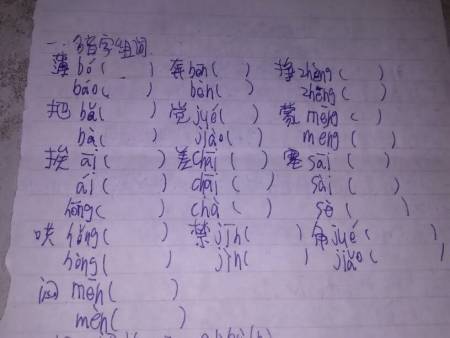 一.多音字组词.
薄 bó ( ) 奔 bēn ( ) 挣 zhèng ( )
báo ( ) bèn ( ) zhēng ( )
把 bǎ ( ) 觉 jué ( ) 蒙 měng ( )
bà ( ) jiào ( ) méng ( )
挨 āi ( ) 差 chāi ( ) 塞 sāi ( )
ái ( ) chāi ( ) sài ( )
hōng ( ) chà ( ) sè ( )
哄 hǒng ( ) 禁 jīn ( ) 角 jué ( )
hòng ( ) jìn ( ) jiǎo ( )
闷 mēn ( )
mèn ( )